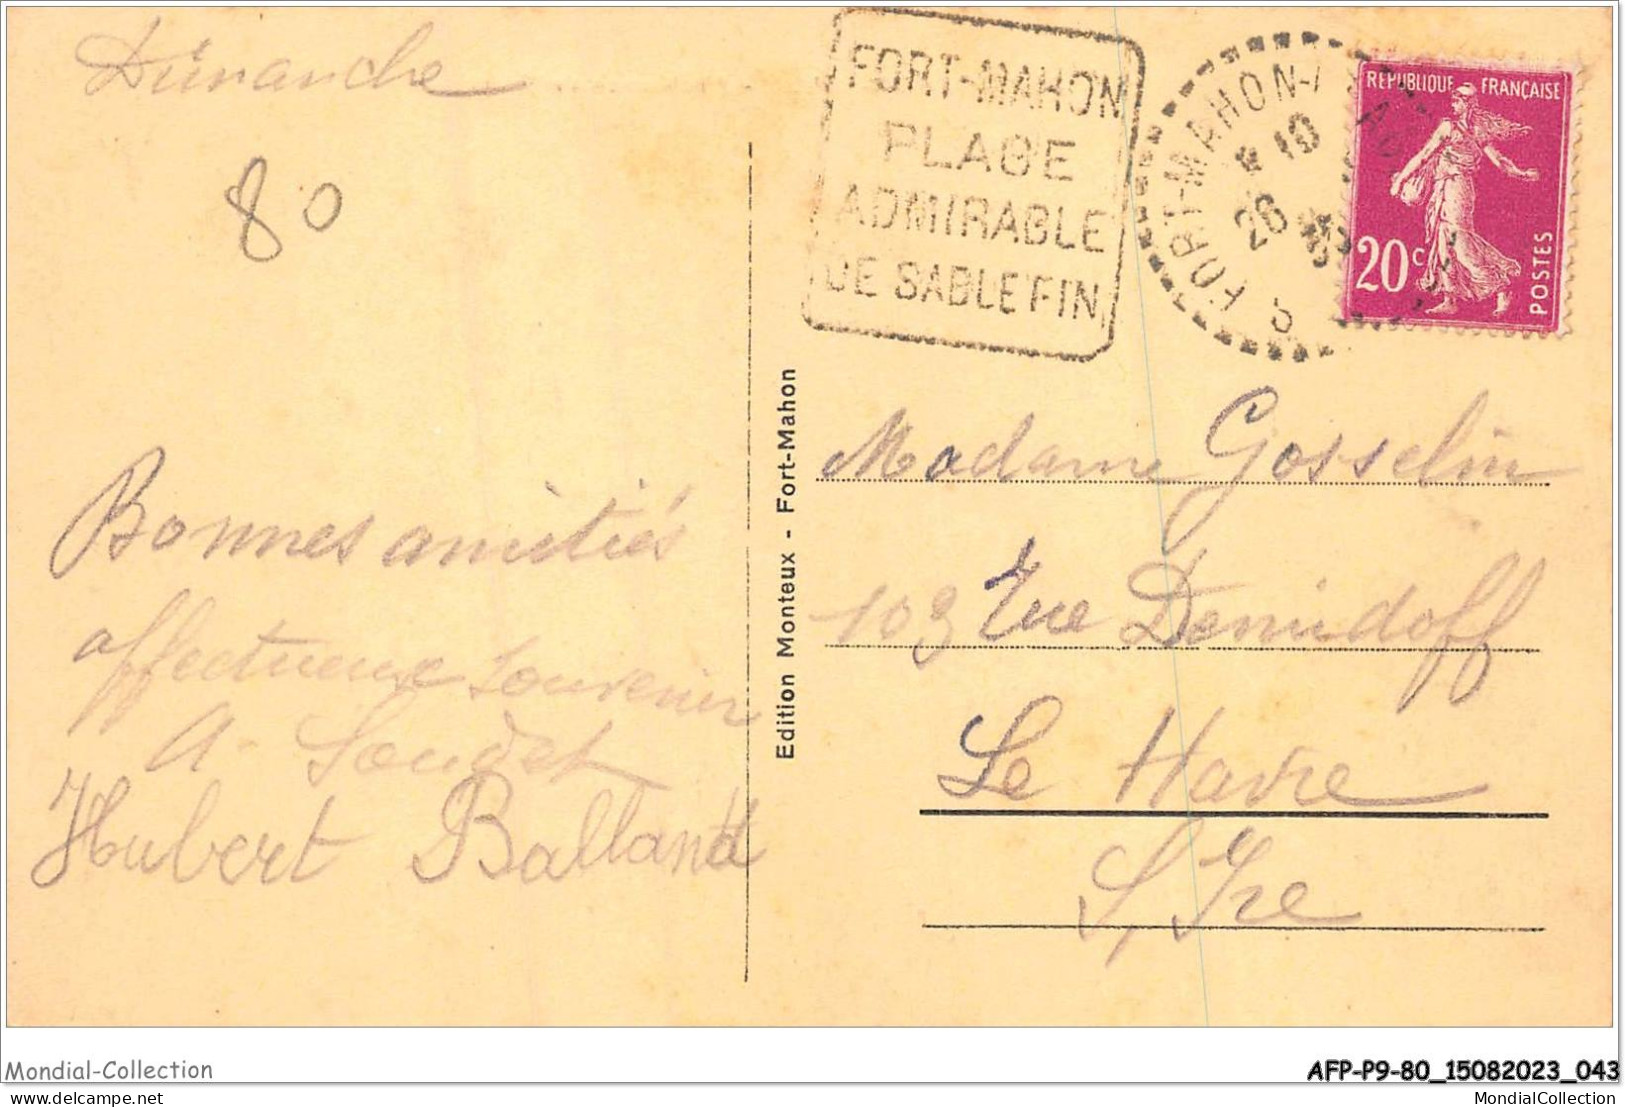 Dimanche
80
Bonnes amitiés
affectueux souvenir
A. Soudet
Hubert Balland
Edition Monteux - Fort-Mahon
FORT-MAHON
PLAGE
ADMIRABLE
DE SABLE FIN
FORT-MAHON-
*10
26
RÉPUBLIQUE FRANÇAISE
20c
POSTES
Madame Gosselin
103 rue Demidoff
Le Havre
S, Ire
Mondial-Collection
AFP-P9-80_15082023_043
delcampe.net
MondialCollection